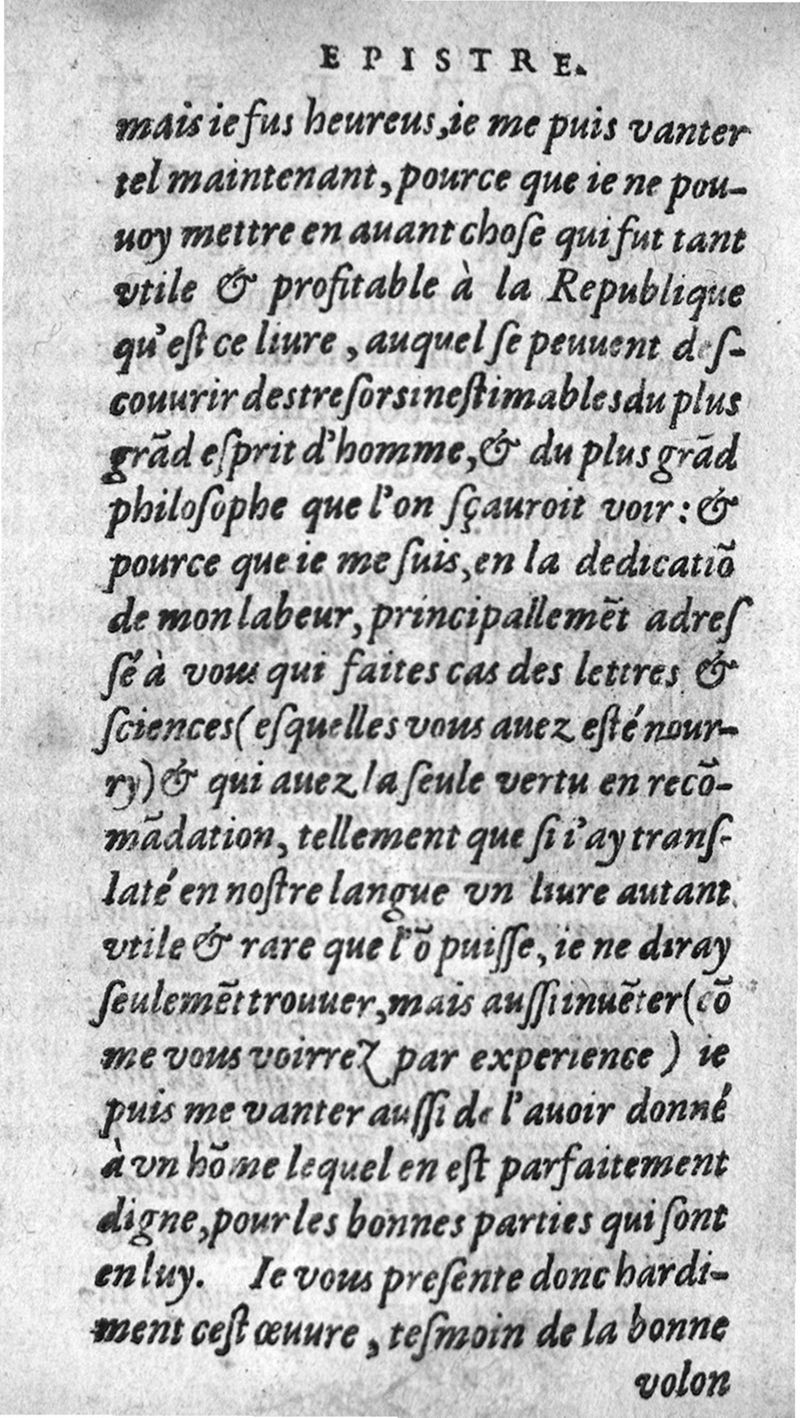 EPISTRE.
mais ie fus heureus, ie me puis vanter
tel maintenant, pource que ie ne pou-
uoy mettre en auant choſe qui fut tant
vtile & profitable à la Republique
qu'eſt ce liure, auquel ſe peuuent deſ-
couurir des treſors ineſtimables du plus
grãd eſprit d'homme, & du plus grãd
philoſophe que l'on ſçauroit voir: &
pource que ie me ſuis, en la dedicatiõ
de mon labeur, principallemẽt adreſ
ſé à vous qui faites cas des lettres &
ſciences (eſquelles vous auez eſté nour-
ry) & qui auez la ſeule vertu en recõ-
mãdation, tellement que ſi i'ay tranſ-
laté en noſtre langue vn liure autant
vtile & rare que l'õ puiſſe, ie ne diray
ſeulemẽt trouuer, mais auſſi inuẽter (cõ
me vous voirrez par experience) ie
puis me vanter auſſi de l'auoir donné
à vn hõme lequel en eſt parfaitement
digne, pour les bonnes parties qui ſont
en luy. Ie vous preſente donc hardi-
ment ceſt œuure, teſmoin de la bonne
volon